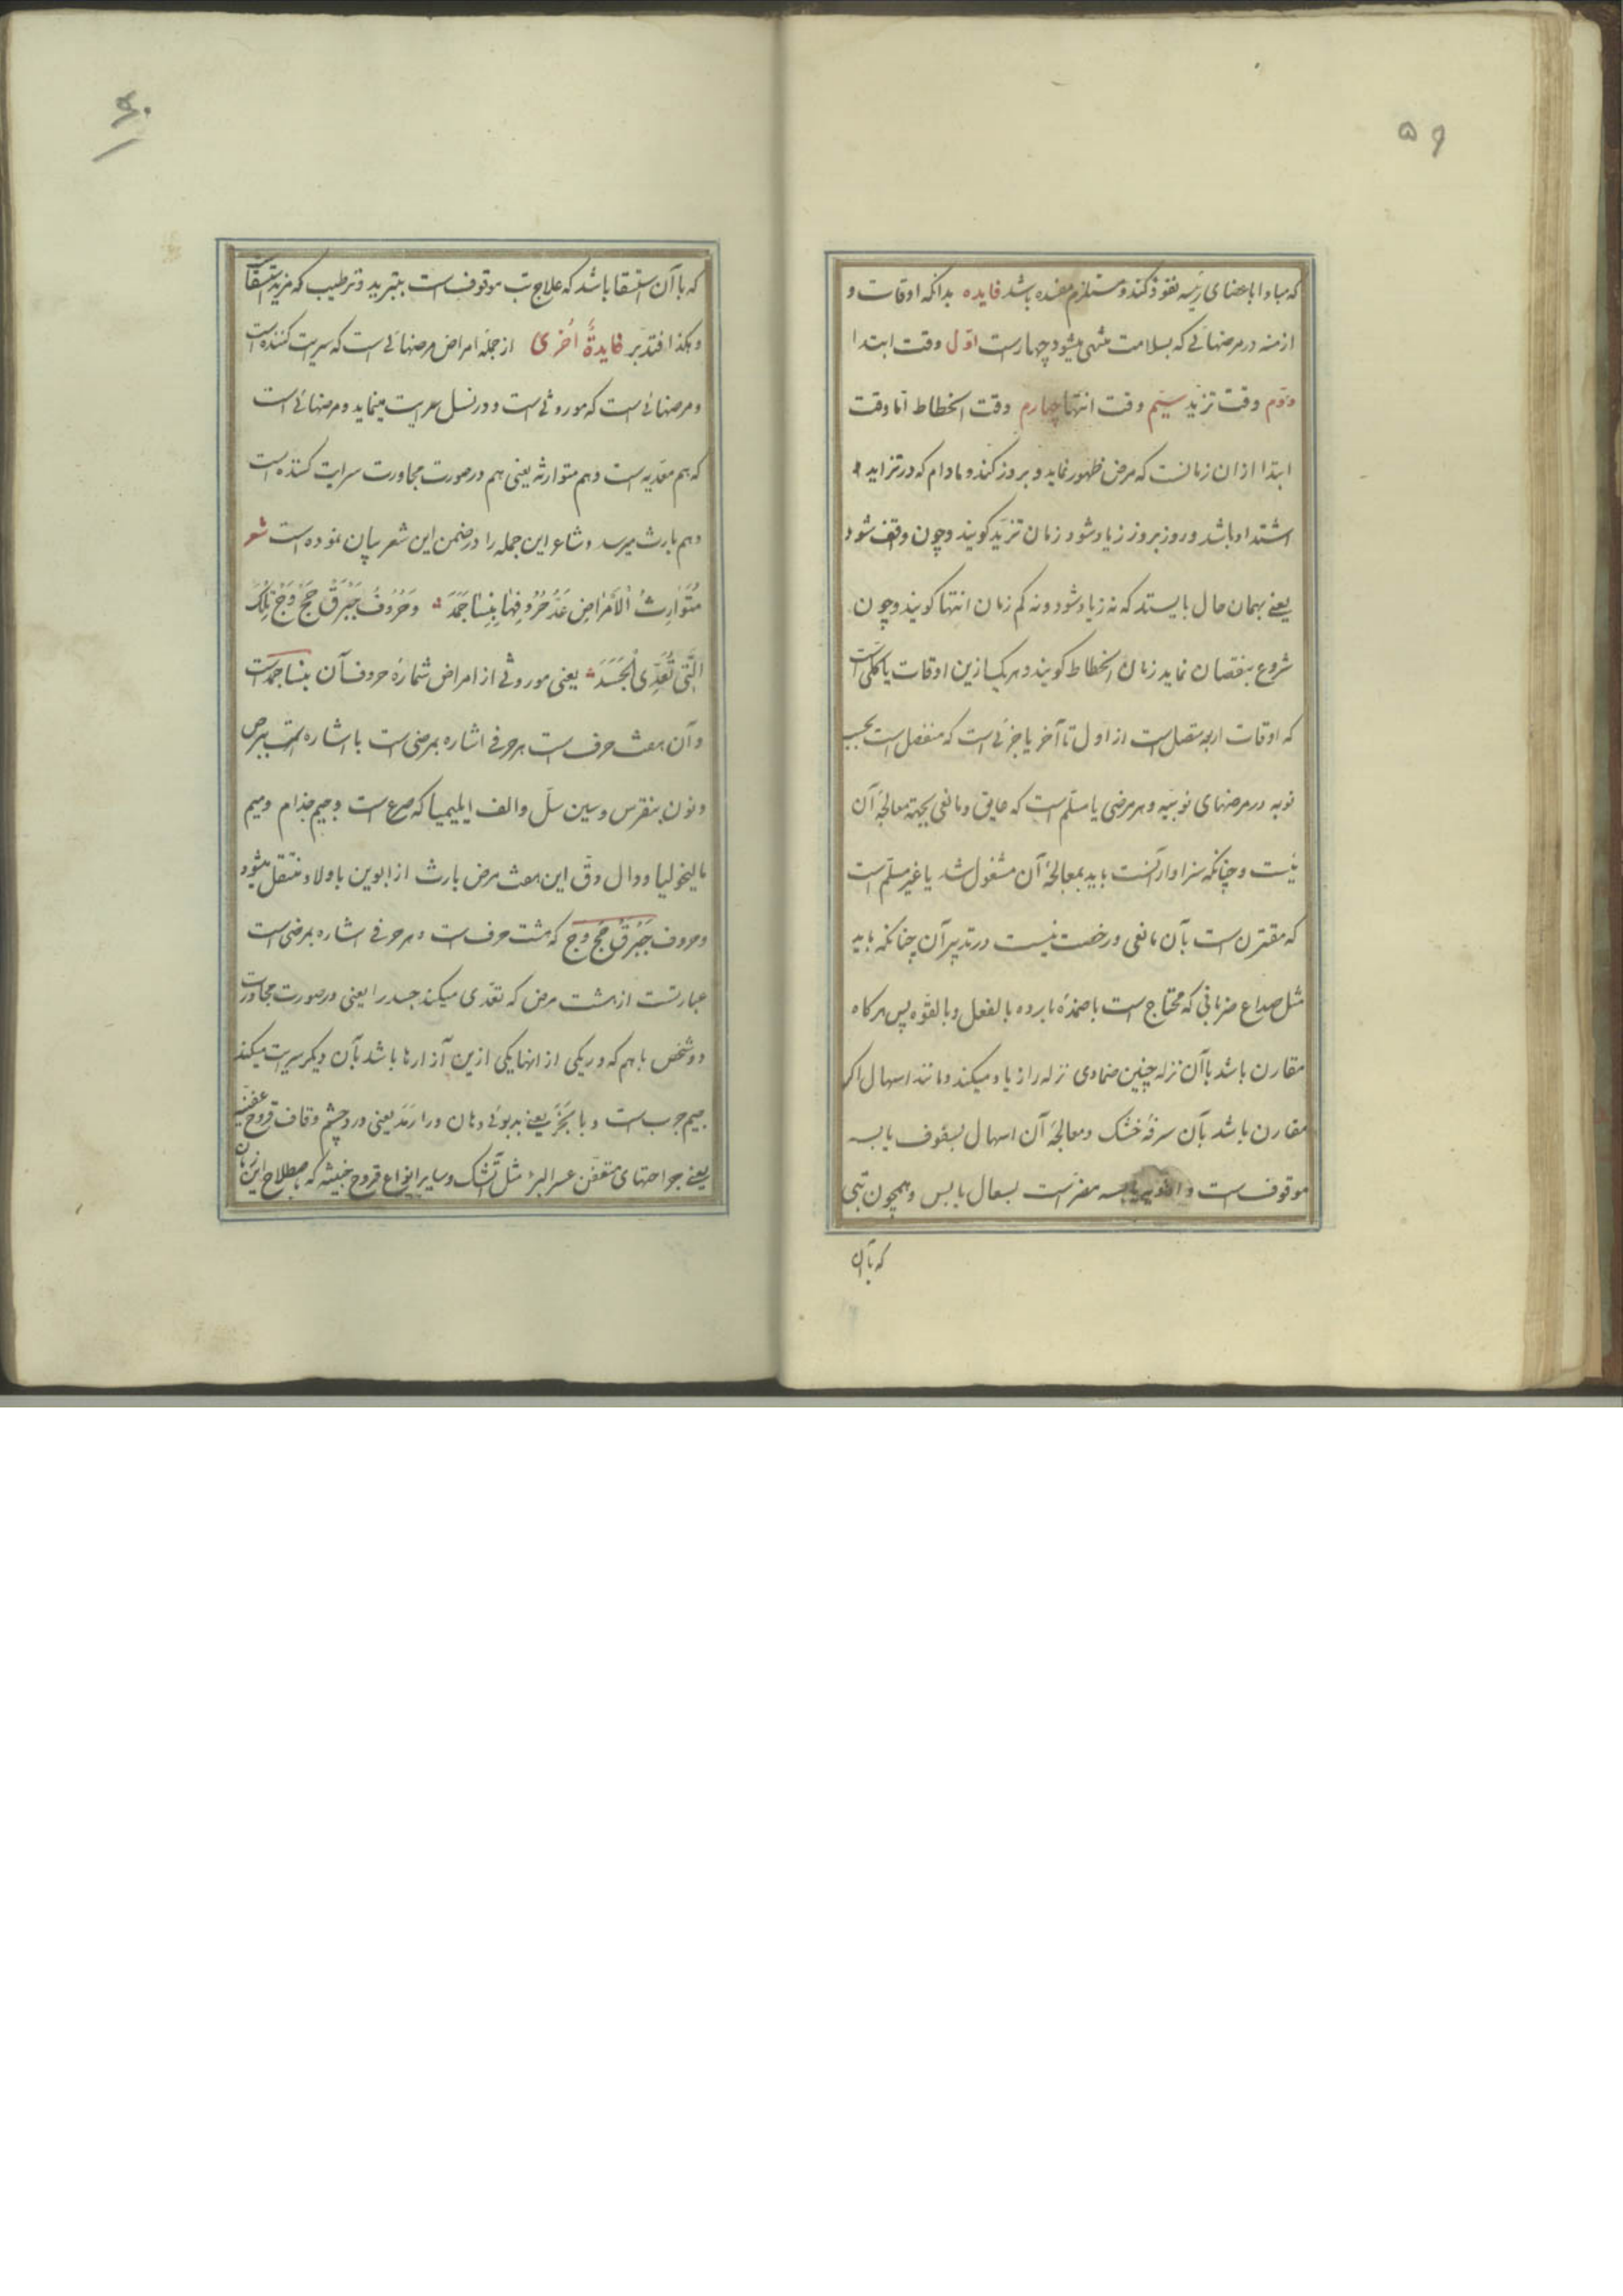 ۵۹
که مبادا باعضای رئیسه نفوذ کند و مستلزم مفسده باشد فایده بدانکه اوقات و
ازمنه در مرضهائی که بسلامت منتهی میشود چهارست اول وقت ابتدا
دوّم وقت تزیّد سیّم وقت انتها چهارم وقت انحطاط امّا وقت
ابتدا از ان زمانست که مرض ظهور نماید و بروز کند و مادام که در تزاید و
اشتداد باشد و روز بروز زیاد شود زمان تزیّد کویند و چون واقف شود
یعنی بهمان حال بایستد که نه زیاد شود و نه کم زمان انتها کویند و چون
شروع بنقصان نماید زمان انحطاط کویند و هر یک ازین اوقات یا کلی است
که اوقات اربعه متصل است از اول تا آخر یا جزئی است که منفصل است بحسب
نوبه در مرضهای نوبتیه و هر مرضی یا مسلّم است که عایق و مانعی بجهة معالجهٔ آن
نیست و چنانکه سزاوار آنست باید بمعالجهٔ آن مشغول شد یا غیر مسلّم است
که مقترن است بآن مانعی و رخصت نیست در تدبیر آن چنانکه باید
مثل صداع ضربانی که محتاج است باضمدهٔ بارده بالفعل و بالقوّه پس هرکاه
مقارن باشد باآن نزله چنین ضمادی نزله را زیاد میکند و مانند اسهال اکر
مقارن باشد بآن سرفهٔ خشک و معالجهٔ آن اسهال بسفوف یابسه
موقوف است و ادویهٔ یابسه مضرّست بسعال یابس و همچون تبی
که باآن
۶۰
که باآن استسقا باشد که علاج تب موقوف است بتبرید و ترطیب که مزید استسقاست
و هکذا فتدبّر فایدةٌ اُخری از جمله امراض مرضهائی است که سرایت کننده است
و مرضهائی است که موروثی است و در نسل سرایت مینماید و مرضهائی است
که هم معدّیه است و هم متوارثه یعنی هم در صورت مجاورت سرایت کننده است
و هم بارث میرسد و شاعر این جمله را در ضمن این شعر بیان نموده است شعر
مُتَوارِثُ الْاَمْراضِ عَدُّ حُرُوفِها بِنِسٰا جَمَدَ وَحُرُوفُ جَبَرَقْ حَجْ وَجْ تِلْکَ
الَّتی تُعَدِّی الْجَسَدَ یعنی موروثی از امراض شمارهٔ حروف آن بنسا جمدست
و آن هفت حرف است هر حرفی اشاره بمرضی است با اشاره است ببرص
و نون بنقرس و سین سلّ و الف ایلیمیا که صرع است و جیم جذام و میم
مالیخولیا و دال دقّ این هفت مرض بارث از ابوین باولاد منتقل میشود
و حروف جَبَرَقْ حَجْ وَجْ که هشت حرف است و هر حرفی اشاره بمرضی است
عبارتست از هشت مرض که تعدّی میکند جسد را یعنی در صورت مجاورت
دو شخص با هم که در یکی از انها یکی ازین آزارها باشد بآن دیکر سرایت میکند
جیم جرب است و با بَخَرَ یعنی بدبوئی دهان و را رَمَد یعنی درد چشم و قاف قروح عفنیه
یعنی جراحتهای متعفّن عسر البرء مثل آتشک و سایر انواع قروح خبیثه که باصطلاح این زمان